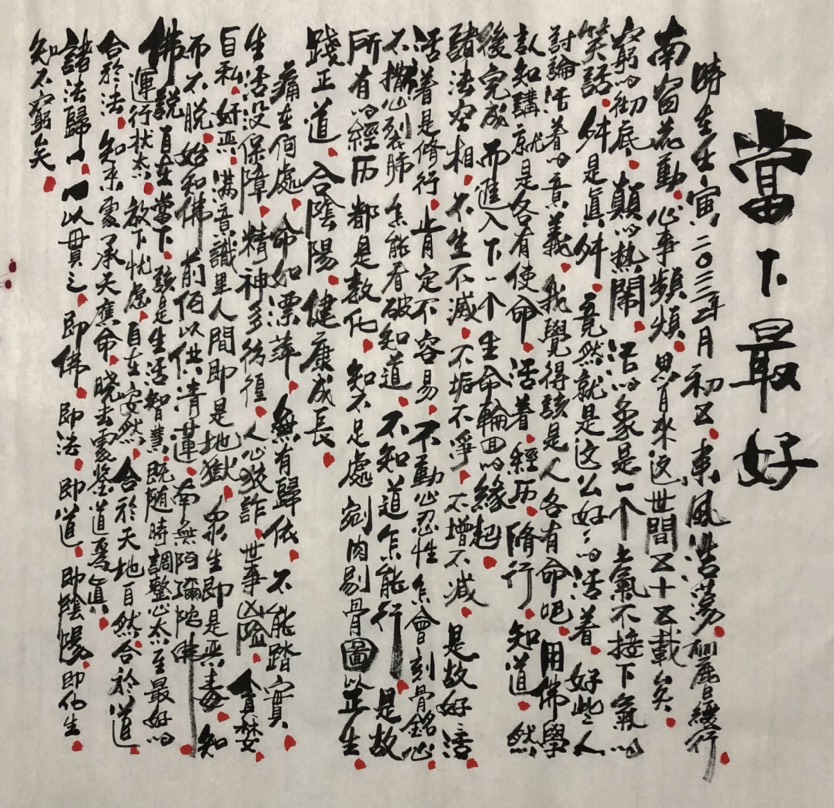 當下最好
時在壬寅二〇二二年月初五.東風浩蕩.麗日緩行.
南窗花動.心事頻煩.思肖來這世間五十五載矣.
窮的彻底.顛的熱鬧.活的象是一个上氣不接下氣的
笑話.舛是真舛.竟然就是这么好好的活着.好些人
討論活着的意義.我覺得該是人各有命吧.用佛學
認知講.就是各有使命.活着.經历.脩行.知道.然
後完成.而進入下一个生命輪回的緣起.
諸法空相.不生不滅.不垢不淨.不增不减.是故好活.
活着是脩行.肯定不容易.不動心忍性.怎會刻骨銘心.
不撕心裂肺.怎能看破知道.不知道怎能行.是故
所有的經历都是教化.知不足處.剜肉剔骨圖以正生.
踐正道.合陰陽.健康成長.
痛在何處.命如漂萍.無有歸依.不能踏實.
生活没保障.精神多彷徨.人心狡詐.世事凶险.貪婪.
自私.奸恶.满意識里人間即是地獄.衆生即是恶毒.知
而不脱.始和佛前伯以供清蓮.南無阿彌陀佛.
佛説自在當下.該是生活智慧.既隨時調整心态至最好的
運行狀态.放下忧慮.自在安然.合於天地自然.合於道.
合於法.知来處了承天應命.晓去處鉴道焉真.
諸法歸心.心以貫之.即佛.即法.即道.即陰陽.即化生.
知不窮矣.